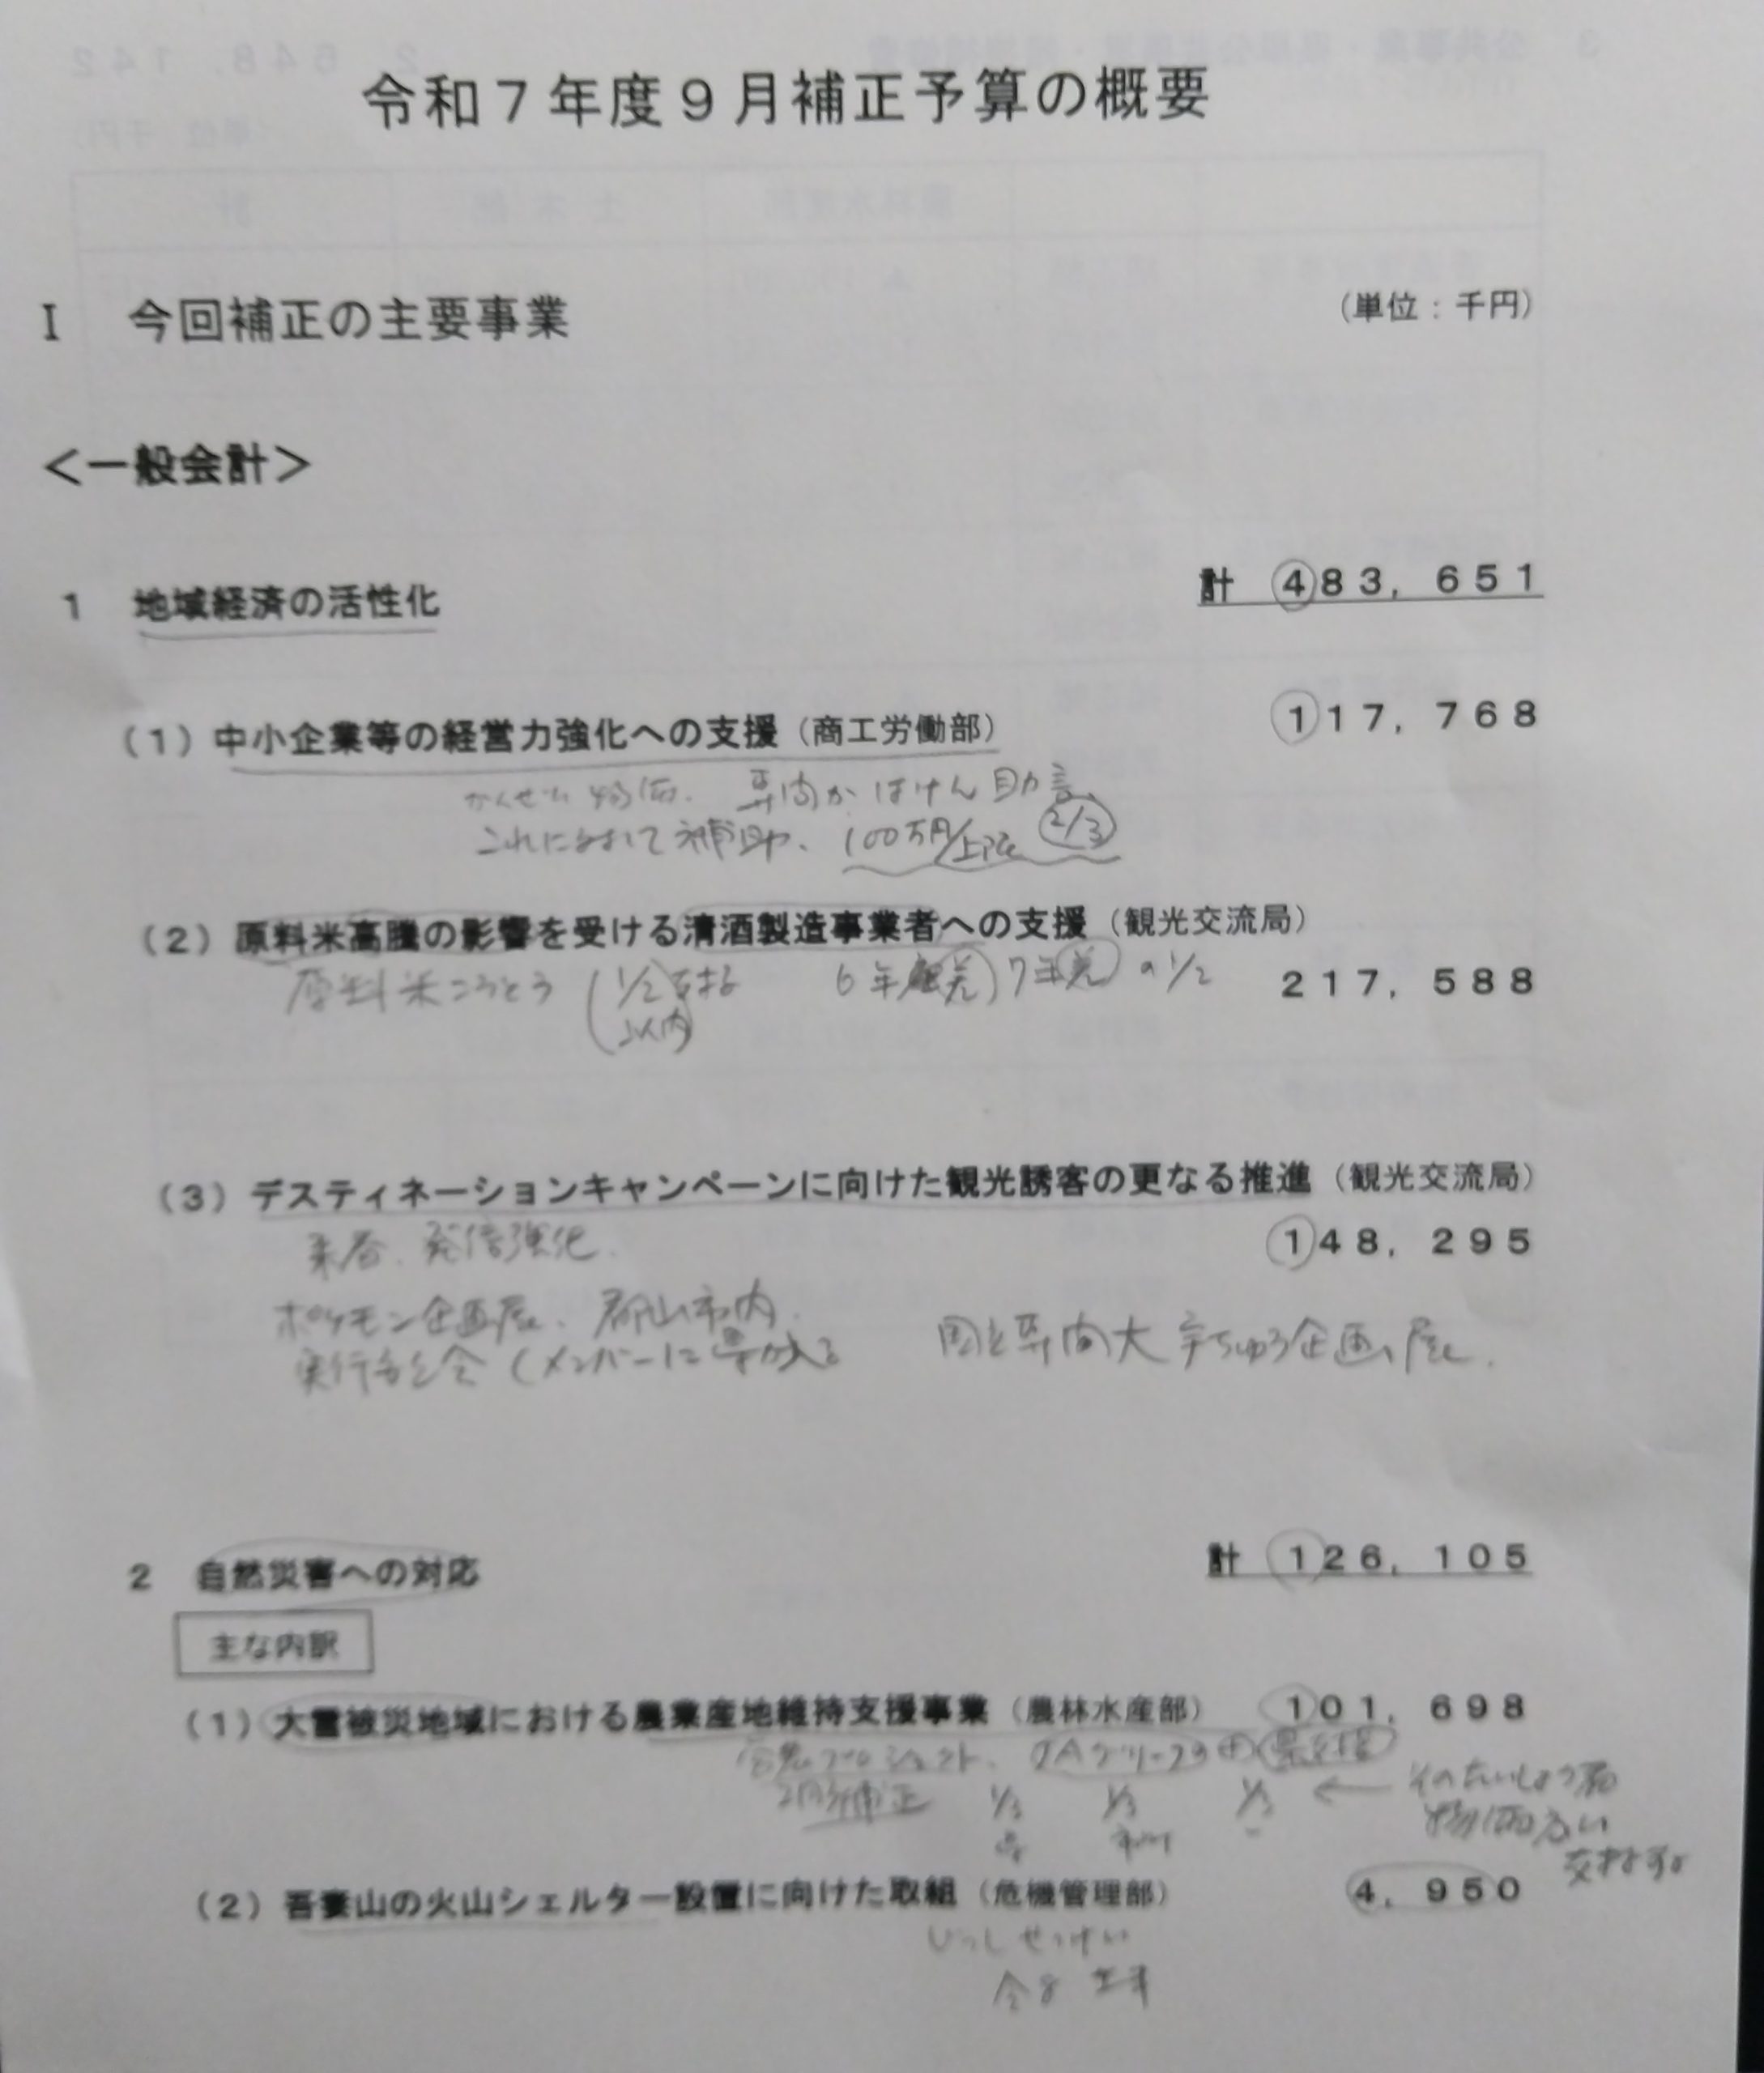 令和７年度９月補正予算の概要
Ⅰ　今回補正の主要事業　（単位：千円）
＜一般会計＞
１　地域経済の活性化　計　４８３，６５１
（１）中小企業等の経営力強化への支援（商工労働部）　１１７，７６８
物価、専門か はけん 助言、
これに 補助、100万円/上限 2/3
（２）原料米高騰の影響を受ける清酒製造事業者への支援（観光交流局）
原料米こうとう（1/2 以内　6年 差）7年 差）の1/2　２１７，５８８
（３）デスティネーションキャンペーンに向けた観光誘客の更なる推進（観光交流局）
来春、発信強化、　１４８，２９５
ポケモン企画展、郡山市内、
実行委会（メンバーに県が入る　国と専 大 ちゅう企画展、
２　自然災害への対応　計　１２６，１０５
主な内訳
（１）大雪被災地域における農業産地維持支援事業（農林水産部）　１０１，６９８
営農プロジェクト、JAグループ ＋ 県支援
補正　1/3　1/3　1/3　←
県　市町
（２）吾妻山の火山シェルター設置に向けた取組（危機管理部）　４，９５０
じっしせっけい